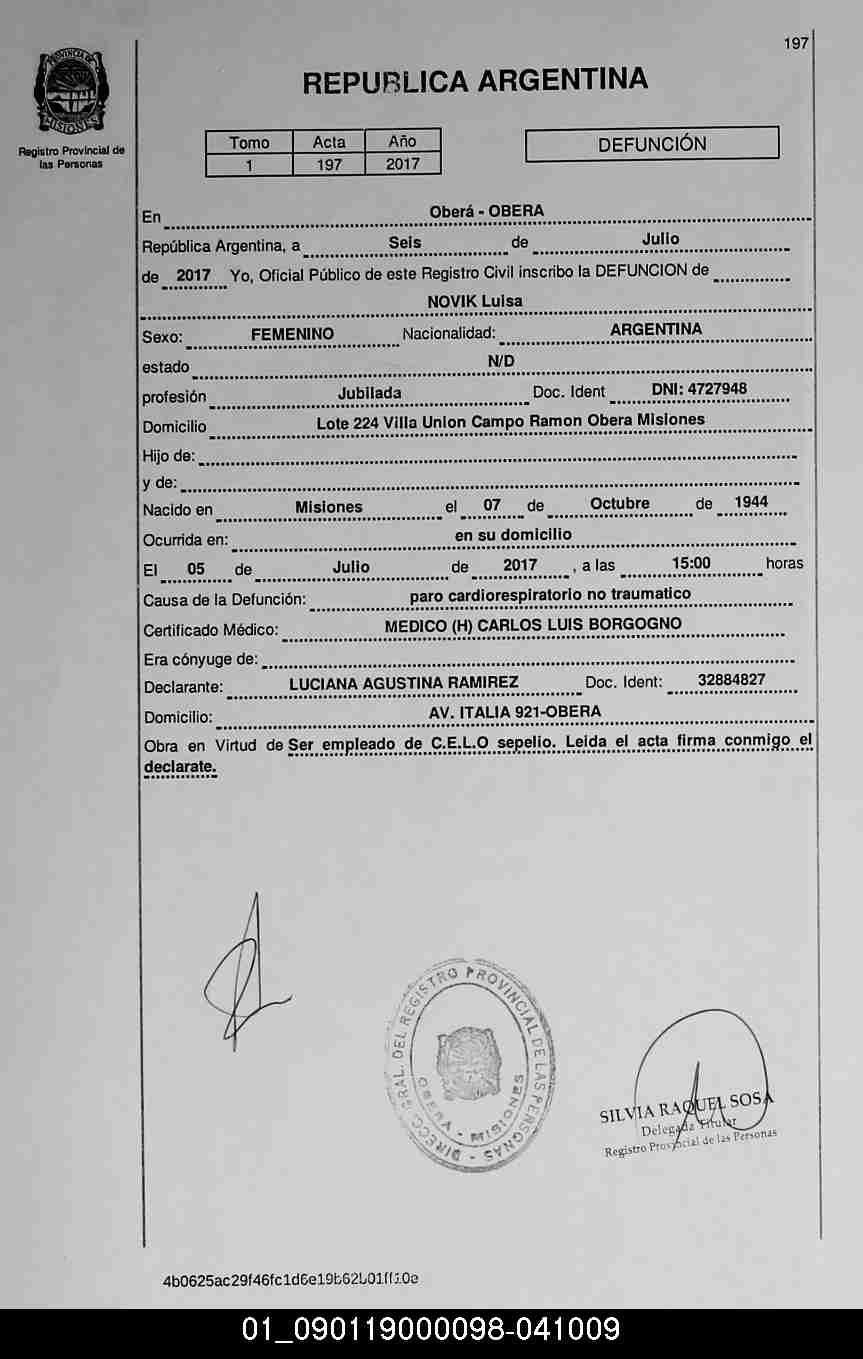 197
PROVINCIA DE
MISIONES
Registro Provincial de
las Personas
REPUBLICA ARGENTINA
Tomo Acta Año
1 197 2017
DEFUNCIÓN
En Oberá - OBERA
República Argentina, a Seis de Julio
de 2017 Yo, Oficial Público de este Registro Civil inscribo la DEFUNCION de
NOVIK Luisa
Sexo: FEMENINO Nacionalidad: ARGENTINA
estado N/D
profesión Jubilada Doc. Ident DNI: 4727948
Domicilio Lote 224 Villa Union Campo Ramon Obera Misiones
Hijo de:
y de:
Nacido en Misiones el 07 de Octubre de 1944
Ocurrida en: en su domicilio
El 05 de Julio de 2017 , a las 15:00 horas
Causa de la Defunción: paro cardiorespiratorio no traumatico
Certificado Médico: MEDICO (H) CARLOS LUIS BORGOGNO
Era cónyuge de:
Declarante: LUCIANA AGUSTINA RAMIREZ Doc. Ident: 32884827
Domicilio: AV. ITALIA 921-OBERA
Obra en Virtud de Ser empleado de C.E.L.O sepelio. Leida el acta firma conmigo el
declarate.
DIRECC. GRAL. DEL REGISTRO PROVINCIAL DE LAS PERSONAS
OBERA - MISIONES
SILVIA RAQUEL SOSA
Delegada Titular
Registro Provincial de las Personas
01_090119000098-041009